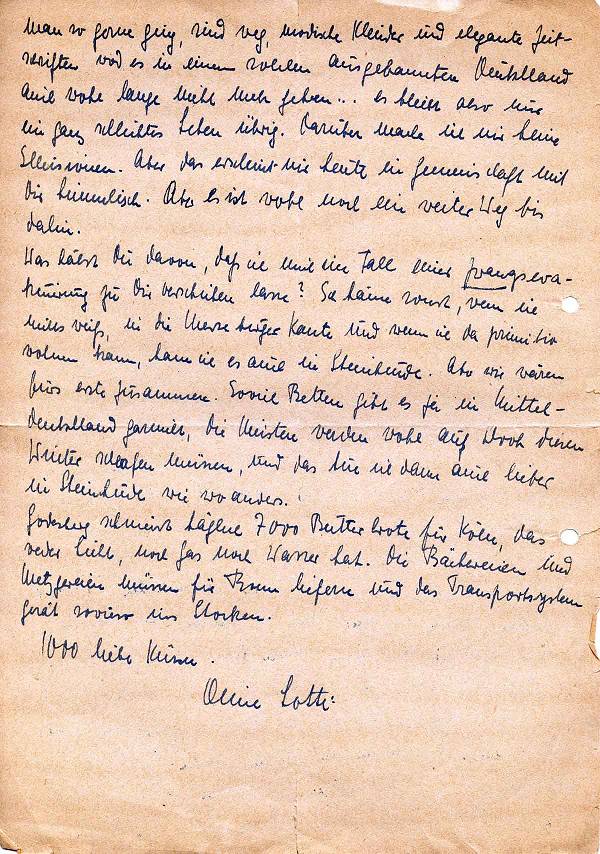 man so gerne ging, sind weg, modische Kleider und elegante Zeit-
schriften wird es in einem solchen ausgebannten Deutschland
auch wohl lange nicht mehr geben... es bleibt also nur
ein ganz schlichtes Leben übrig. Darüber mache ich mir keine
Illusionen. Aber das erscheint mir heute in Gemeinschaft mit
Dir himmlisch. Aber es ist wohl noch ein weiter Weg bis
dahin.
Was hälst Du davon, daß ich mich im Fall einer Zwangseva-
kuierung zu Dir verschicken lasse? Ich käme sonst, wenn ich
muss, in die Merseburger Kante und wenn ich da primitiv
wohnen kann, kann ich es auch in Steinhude. Aber wir wären
fürs erste zusammen. Soviel Betten gibt es ja in Mittel-
deutschland garnicht, die Meisten werden wohl auf Stroh diesen
Winter schlafen müssen, und das tue ich dann auch lieber
in Steinhude wie wo anders.
Godesberg schmiert täglich 7000 Butterbrote für Köln, das
weder Licht, noch Gas noch Wasser hat. Die Bäckereien und
Metzgereien müssen für Bonn liefern und das Transportsystem
gerät sowieso ins Stocken.
1000 liebe Küsse.
Deine Lotti